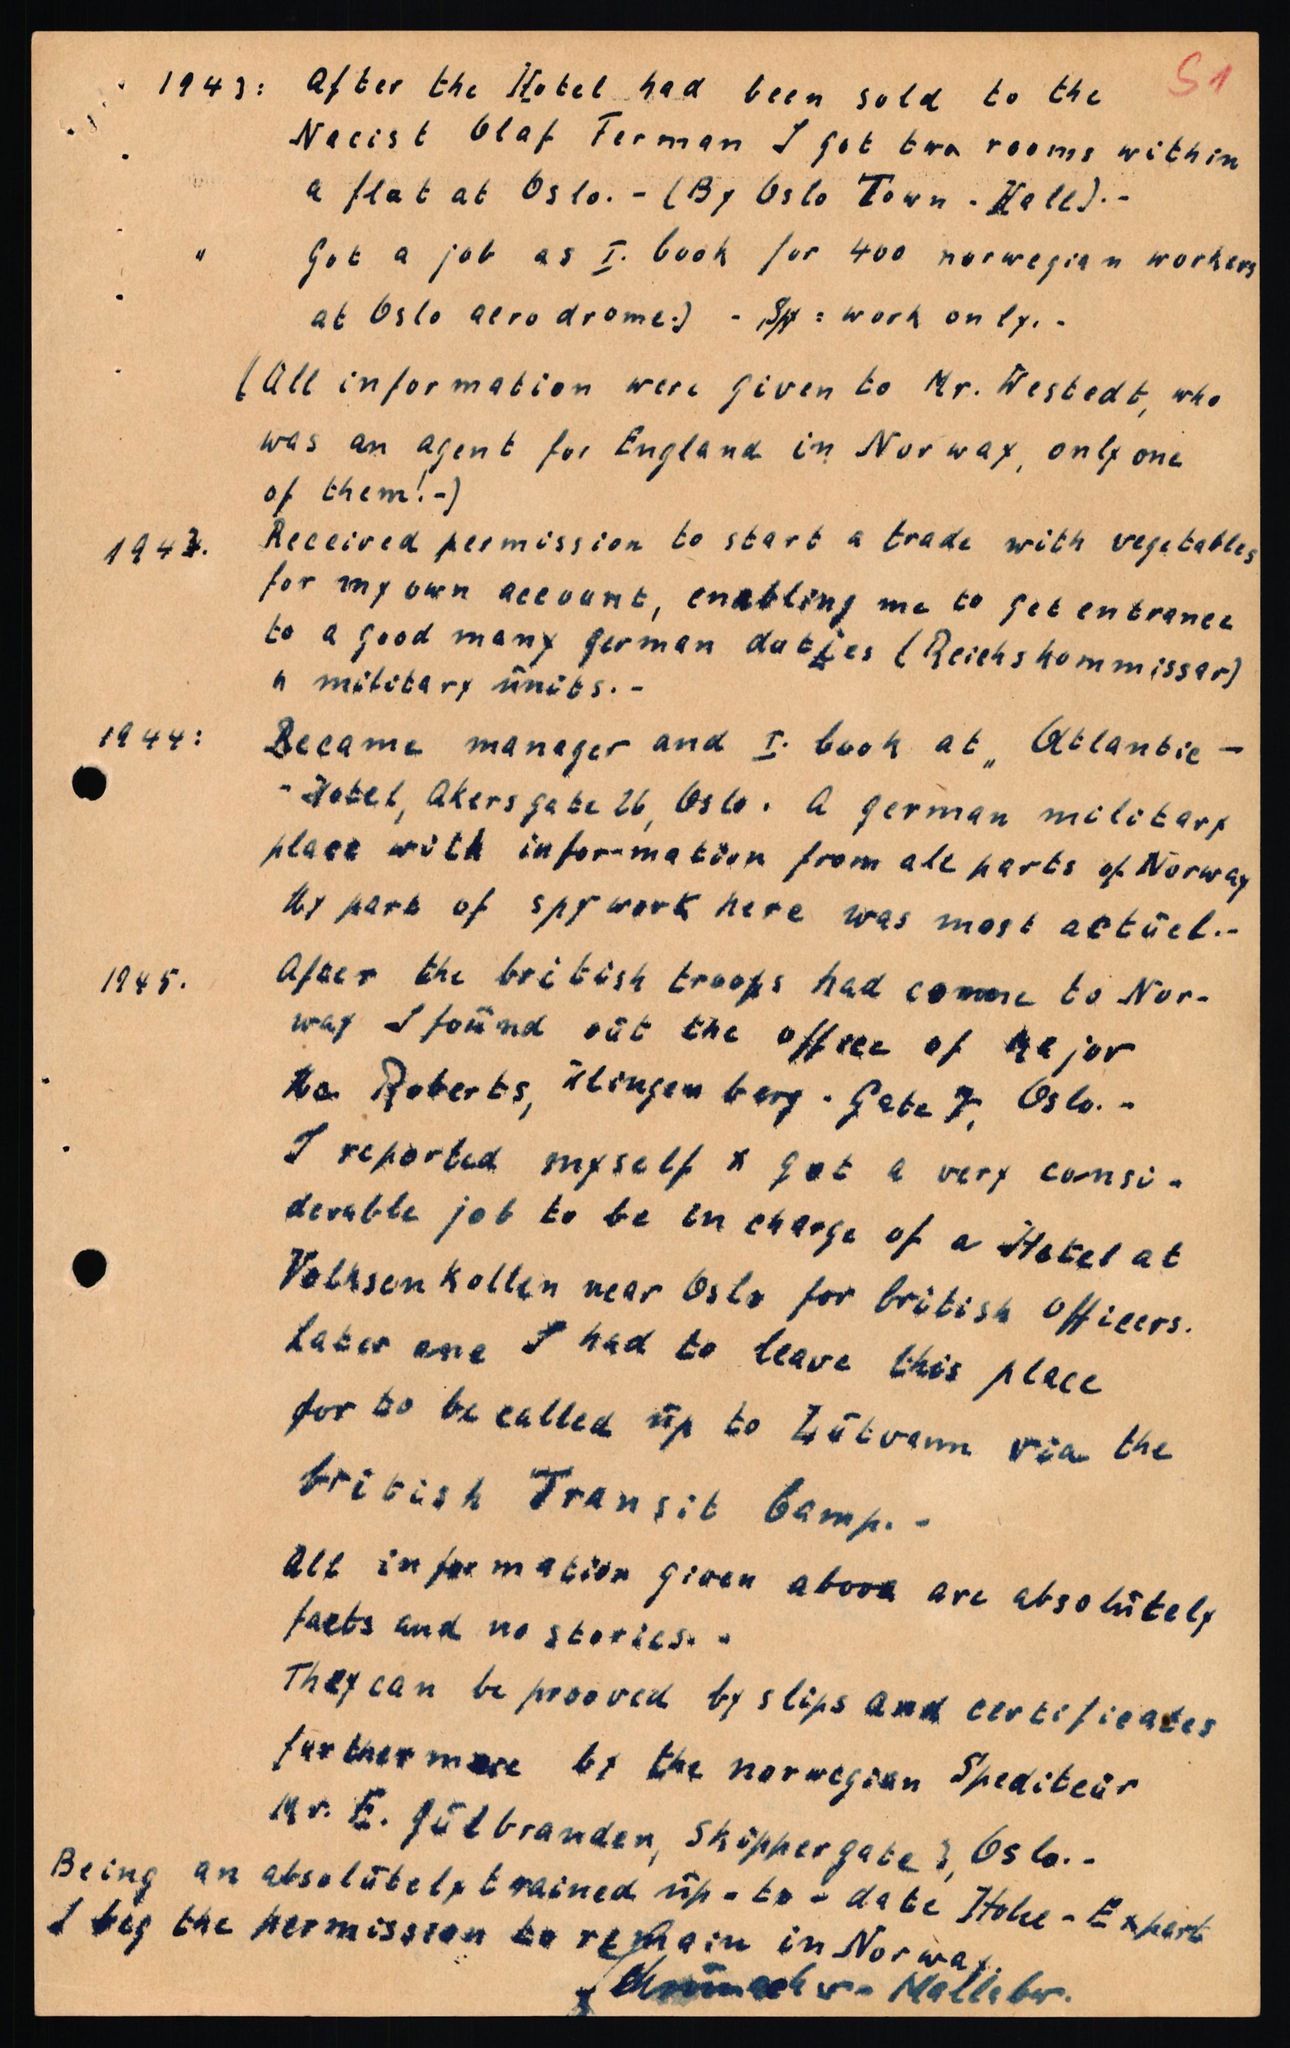 S1
1943: After the Hotel had been sold to the
Nacist Olaf Ferman I got two rooms within
a flat at Oslo. - (By Oslo Town - Hall). -
" Got a job as I. book for 400 norwegian workers
at Oslo aerodrome.) - Spy = work only. -
(All information were given to Mr. Westedt, who
was an agent for England in Norway, only one
of them! -)
1943. Received permission to start a trade with vegetables
for my own account, enabling me to get entrance
to a good many german duties (Reichskommissar)
n military units. -
1944: Became manager and I. book at „ Atlantic -
- Hotel, Akersgate 26, Oslo. A german military
place with infor-mation from all parts of Norway
My part of spy work here was most actuel. -
1945. After the british troops had come to Nor-
way I found out the office of Major
Roberts, Klingenberg - Gate 7, Oslo. -
I reported myself & got a very consi-
derable job to be in charge of a Hotel at
Volksenkollen near Oslo for british officers.
Later one I had to leave this place
for to be called up to Lutvann via the
british Transit Camp. -
All information given above are absolutely
facts and no stories. -
They can be prooved by slips and certificates
furthermore by the norwegian Spediteur
Mr. E. Gulbranden, Skippergate 3, Oslo. -
Being an absolutely trained up - to - date Hotel - Expert
I beg the permission to remain in Norway.